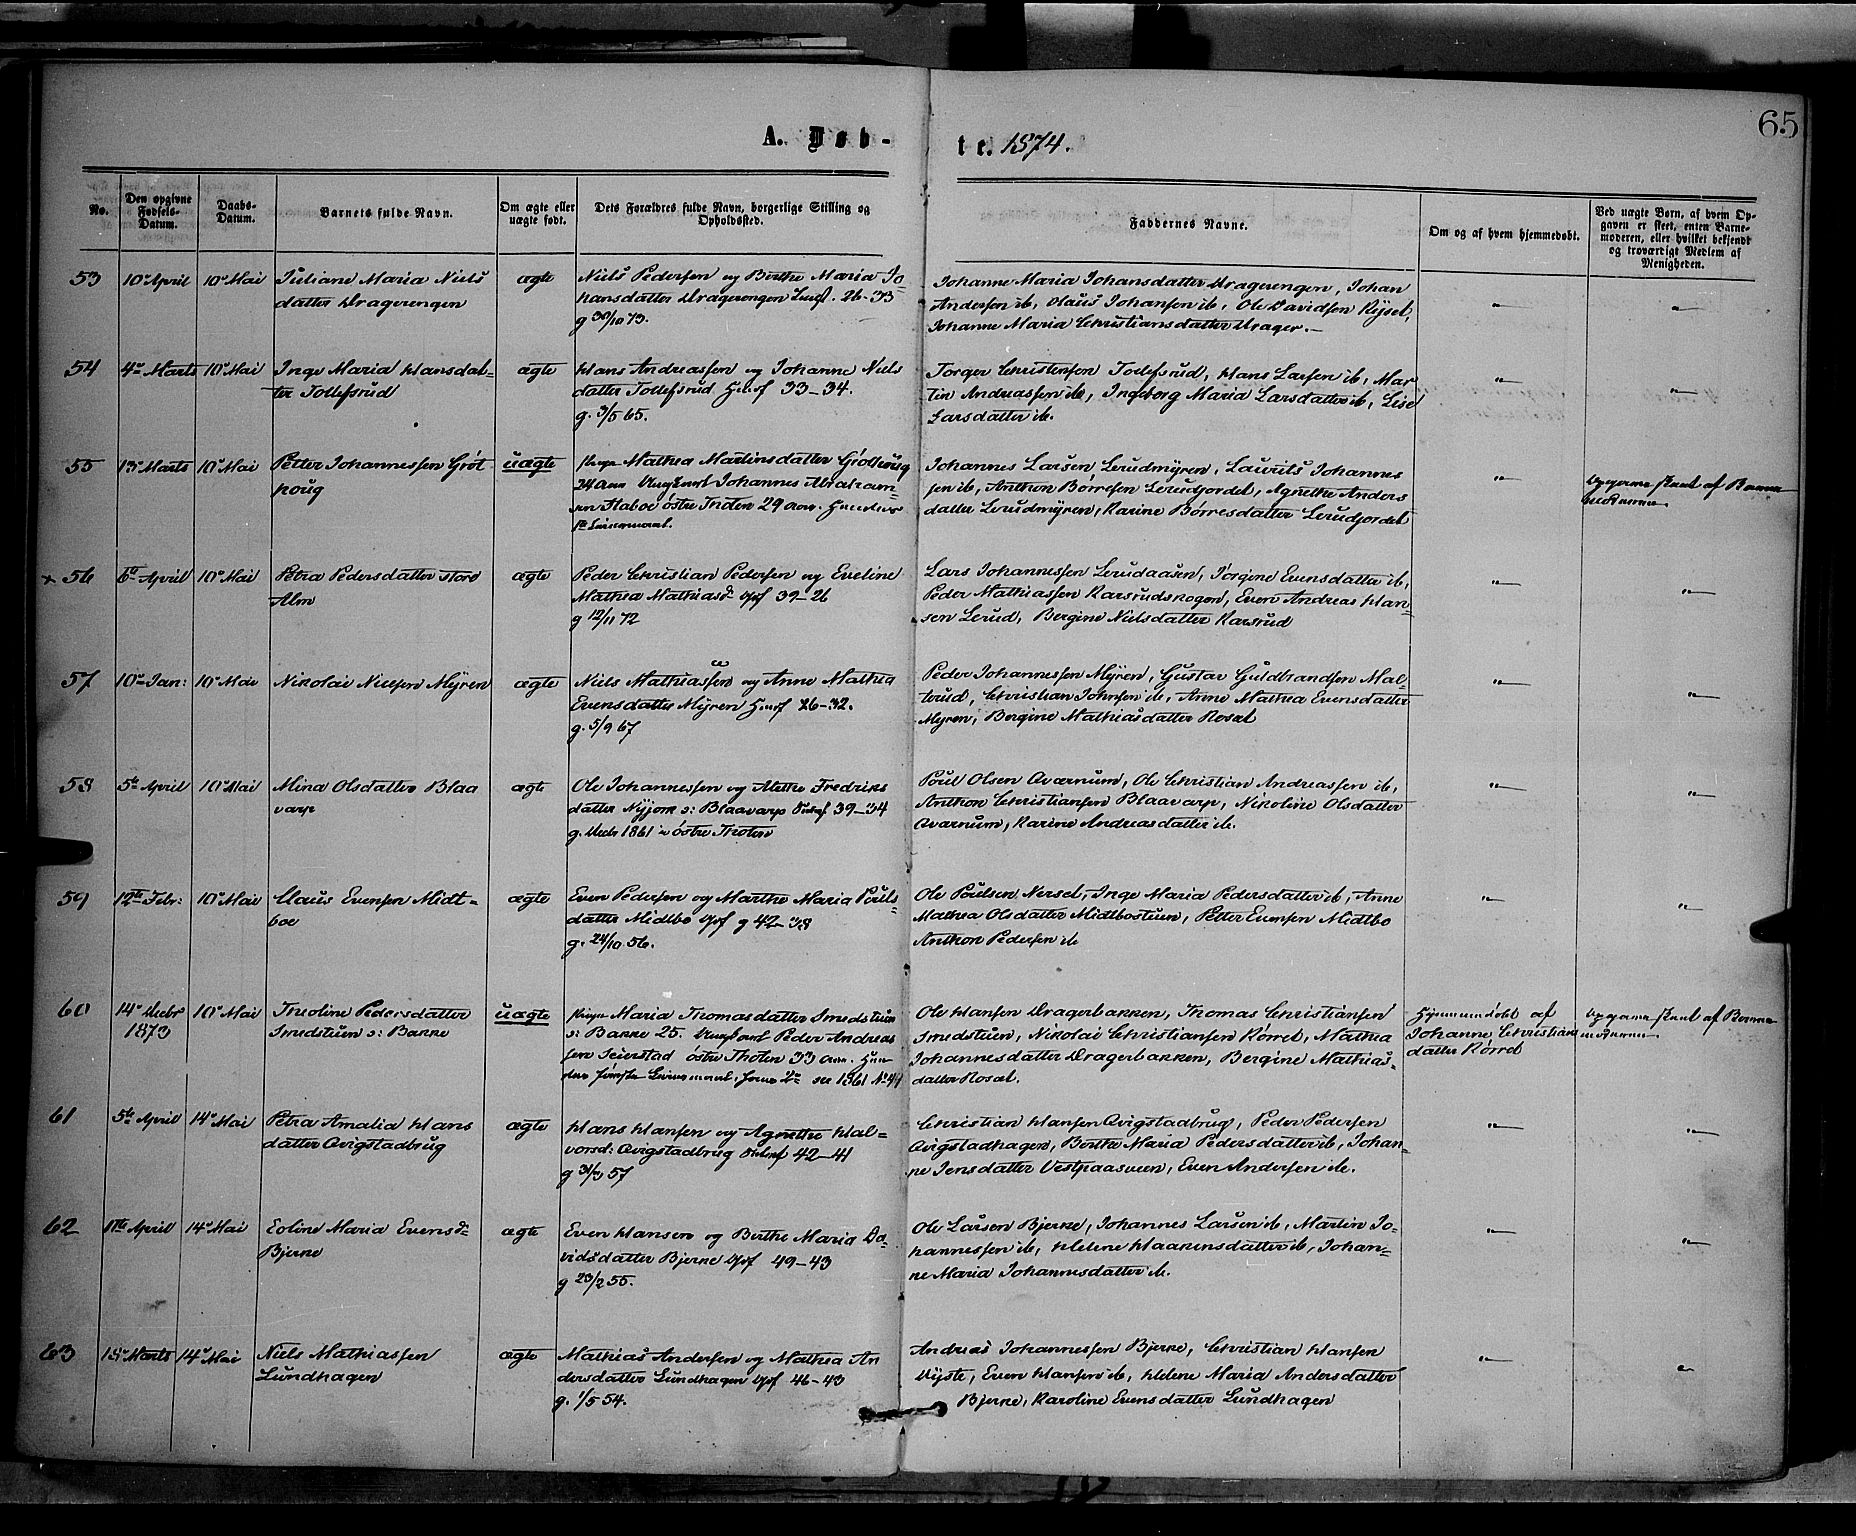 65
A. Døb-
te. 1874.
No.
Den opgivne
Fødsels-
Datum.
Daabs-
Datum.
Barnets fulde Navn.
Om ægte eller
uægte født.
Dets Forældres fulde Navn, borgerlige Stilling og
Opholdssted.
Faddernes Navne.
Om og af hvem hjemmedøbt.
Ved uægte Børn, af hvem Op-
gaven er skeet, enten Barne-
moderen, eller hvilket bekjendt
og troværdigt Medlem af
Menigheden.
53
10de April
10de Mai
Juliane Maria Niels
datter Dragerengen
ægte
Niels Pedersen og Berthe Maria Jo
hansdatter Dragerengen 26-33
g 30/10 73.
Johanne Maria Johansdatter Dragerengen, Johan
Andersen ib, Olaus Johansen ib, Ole Davidsen Rijset,
Johanne Maria Christiansdatter Drager.
54
4de Marts
10de Mai
Inge Maria Hansdat-
ter Tollefsrud
ægte
Hans Andreassen og Johanne Niels
datter Tollefsrud Huusf 33-34.
g. 3/5 65.
Torger Christensen Tollefsrud, Hans Larsen ib, Mar
tin Andreassen ib, Ingeborg Maria Larsdatter ib, Lise
Larsdatter ib.
55
13de Marts
10de Mai
Petter Johannessen Grøt
houg
uægte
Pigen Mathea Martinsdatter Grøthoug
24 Aar Ungkarl Johannes Abraham-
sen Staboe østre Thoten 29 Aar. Hendes
1ste Leiermaal.
Johannes Larsen Lerudmyren, Laurits Johannes
sen ib, Anthon Børresen Lerudjordet, Agnethe Anders
datter Lerudmyren, Karine Børresdatter Lerudjordet
Opgaven skeet af Barne
moderen
56
6te April
10de Mai
Petra Pedersdatter Store
Alm
ægte
Peder Christian Pedersen og Eveline
Mathea Mathiasd 39-26
g 12/11 72
Lars Johannessen Lerudaasen, Jørgine Evensdatter ib,
Peder Mathiassen Karsrudskogen, Even Andreas Han-
sen Lerud, Bergine Nielsdatter Karsrud
57
10de Jan:
10de Mai
Nikolai Nielsen Myren
ægte
Niels Mathiassen og Anne Mathea
Evensdatter Myren Huusf 26-32.
g. 5/9 67
Peder Johannessen Myren, Gustav Guldbrandsen Mal-
terud, Christian Johnsen ib, Anne Mathea Evensdatter
Myren, Bergine Mathiasdatter Roset
58
5te April
10de Mai
Mina Olsdatter Blaa
varp
ægte
Ole Johannessen og Mathe Fredriks
datter Nyjom s: Blaavarp 39-34
g. Decbr 1861 i østre Thoten
Poul Olsen Qværnum, Ole Christian Andreassen ib,
Anthon Christiansen Blaavarp, Nikoline Olsdatter
Qværnum, Karine Andreasdatter ib.
59
12te Febr:
10de Mai
Claus Evensen Midt-
boe
ægte
Even Pedersen og Marthe Maria Pouls-
datter Midtbo Gpf g 42-38
g. 24/10 56.
Ole Poulsen Nerset, Inge Maria Pedersdatter ib, Anne
Mathea Olsdatter Midtbostuen, Petter Evensen Midtbo
Anthon Pedersen ib
60
14de Decbr
1873
10de Mai
Theoline Pedersdatter
Smedstuen s: Bakke
uægte
Pigen Maria Thomasdatter Smedstuen
s: Bakke 25. Ungkarl Peder Andreas
sen Seierstad østre Thoten 33 Aar. Hen-
des første Leiermaal, hans 2de see 1861 No 44
Ole Hansen Dragerbakken, Thomas Christiansen
Smedstuen, Nikolai Christiansen Kørret, Mathea
Johannesdatter Dragerbakken, Bergine Mathias-
datter Roset.
Hjemmedøbt af
Johanne Christians
datter Kørret
Opgaven skeet af Barne
moderen
61
5te April
14de Mai
Petra Amalia Hans
datter Qvigstadbrug
ægte
Hans Hansen og Agnethe Hal-
vorsd: Qvigstadbrug 42-41
g 31/3 57
Christian Hansen Qvigstadbrug, Peder Pedersen
Qvigstadhagen, Berthe Maria Pedersdatter ib, Johan-
ne Jensdatter Vestraasveen, Even Andersen ib.
62
11te April
14de Mai
Eoline Maria Evensd
Bjerke
ægte
Even Hansen og Berthe Maria Da-
vidsdatter Bjerke Gpf 49-43
g 23/2 55.
Ole Larsen Bjerke, Johannes Larsen ib, Martin Jo-
hannessen ib, Helene Haakensdatter ib, Johan-
ne Maria Johannesdatter ib.
63
18de Marts
14de Mai
Niels Mathiassen
Lundhagen
ægte
Mathias Andersen og Mathea An
dersdatter Lundhagen Gpf 46-43
g. 1/5 54.
Andreas Johannessen Bjerke, Christian Hansen
Dyste, Even Hansen ib, Helene Maria Andersdatter
Bjerke, Karoline Evensdatter Lundhagen